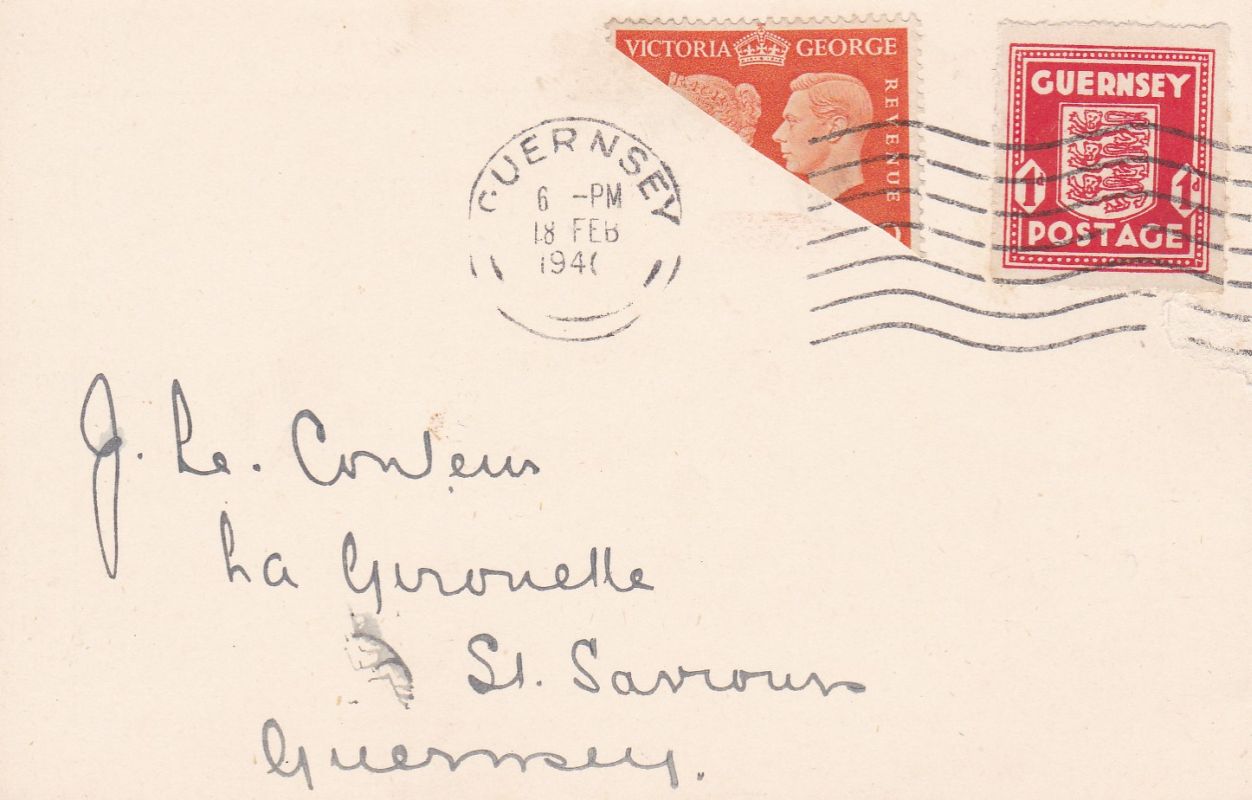 VICTORIA GEORGE
REVENUE
GUERNSEY
1d 1d
POSTAGE
GUERNSEY
6 -PM
18 FEB
194
J. Le. Conteur
La Girouette
St. Saviours
Guernsey.